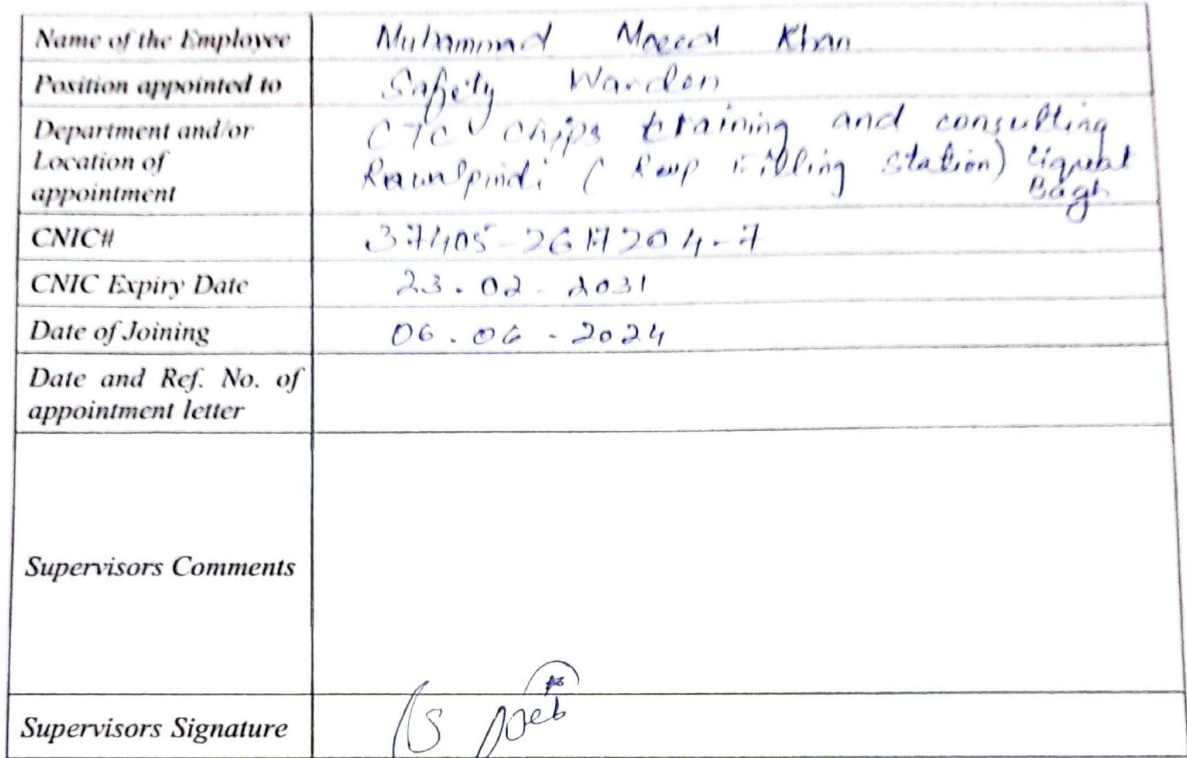 Name of the Employee Muhammad Khan
Position appointed to Safety Warden
Department and/or CTC chips training and consulting
Location of Rawalpindi ( Filling Station) Liquat
appointment Bagh
CNIC# 37405-2617204-7
CNIC Expiry Date 23.02.2031
Date of Joining 06.06-2024
Date and Ref. No. of
appointment letter
Supervisors Comments
Supervisors Signature